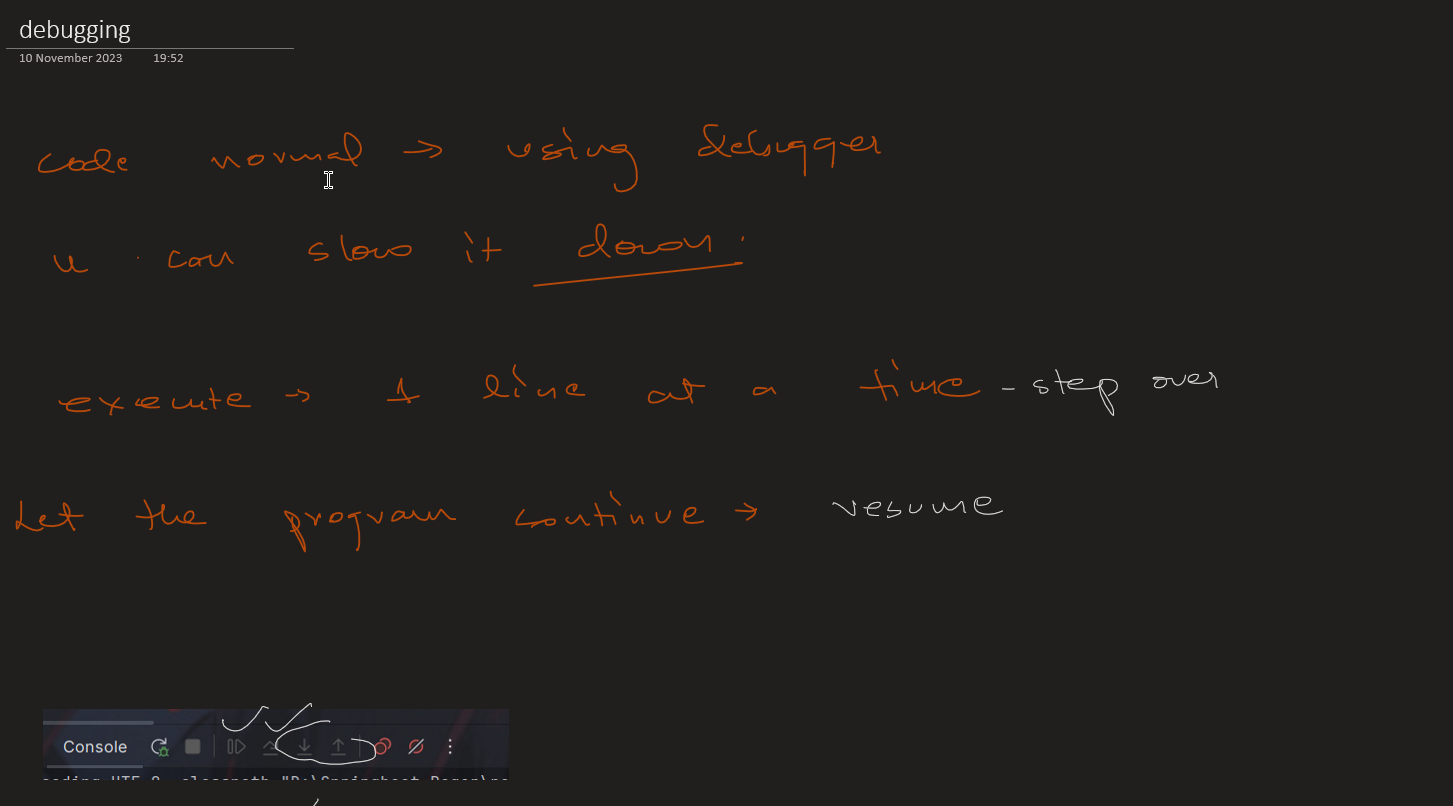 debugging
10 November 2023 19:52
code normal → using debugger
u can slow it down.
execute → 1 line at a time - step over
Let the program continue → resume
Console